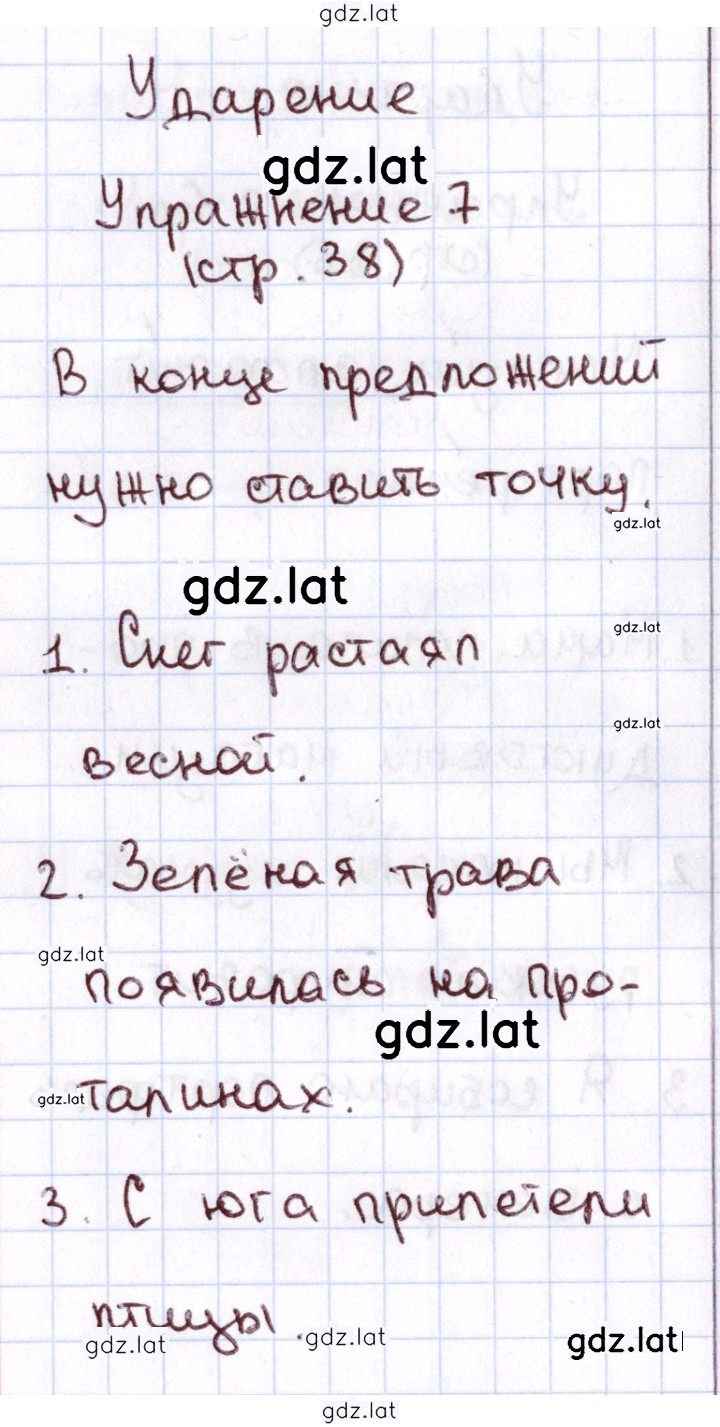 gdz.lat
Ударение
gdz.lat
Упражнение 7
(стр. 38)
В конце предложений
нужно ставить точку.
gdz.lat
gdz.lat
1. Снег растаял
gdz.lat
весной.
gdz.lat
2. Зелёная трава
gdz.lat
появилась на про-
gdz.lat
gdz.lat
талинах.
3. С юга прилетели
птицы.
gdz.lat
gdz.lat
gdz.lat
gdz.lat